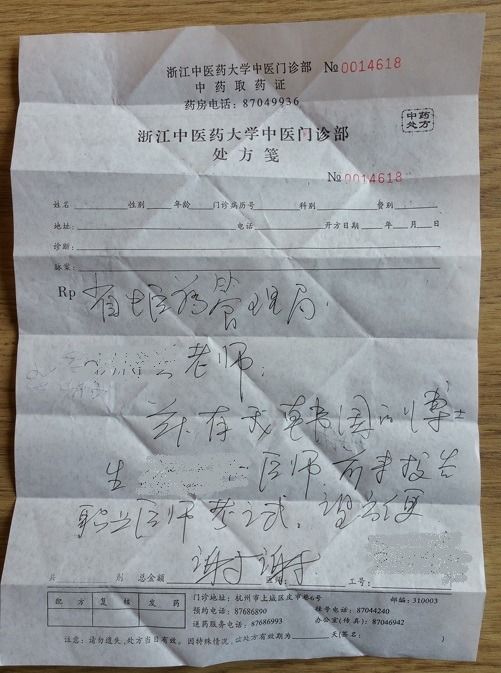 浙江中医药大学中医门诊部 №0014618
中药取药证
药房电话：87049936
中药
处方
浙江中医药大学中医门诊部
处方笺
№0014618
姓名 性别 年龄 门诊病历号 科别 费别
地址： 电话 开方日期 年 月 日
诊断：
脉案：
Rp 省中医药管理局：
老师：
兹有我 韩国的博士
生 医师，前来报告
职业医师考试，望方便
谢谢
别 总金额 医师： 工号：
配方 复核 发药
门诊地址：杭州市上城区庆春巷6号 邮编：310003
预约电话：87686890 挂号电话：87044240
送药服务电话：87686993 办公室(传真)：87046942
注意：请勿遗失，处方当日有效。因特殊情况，此处方有效期为 天(签名： )